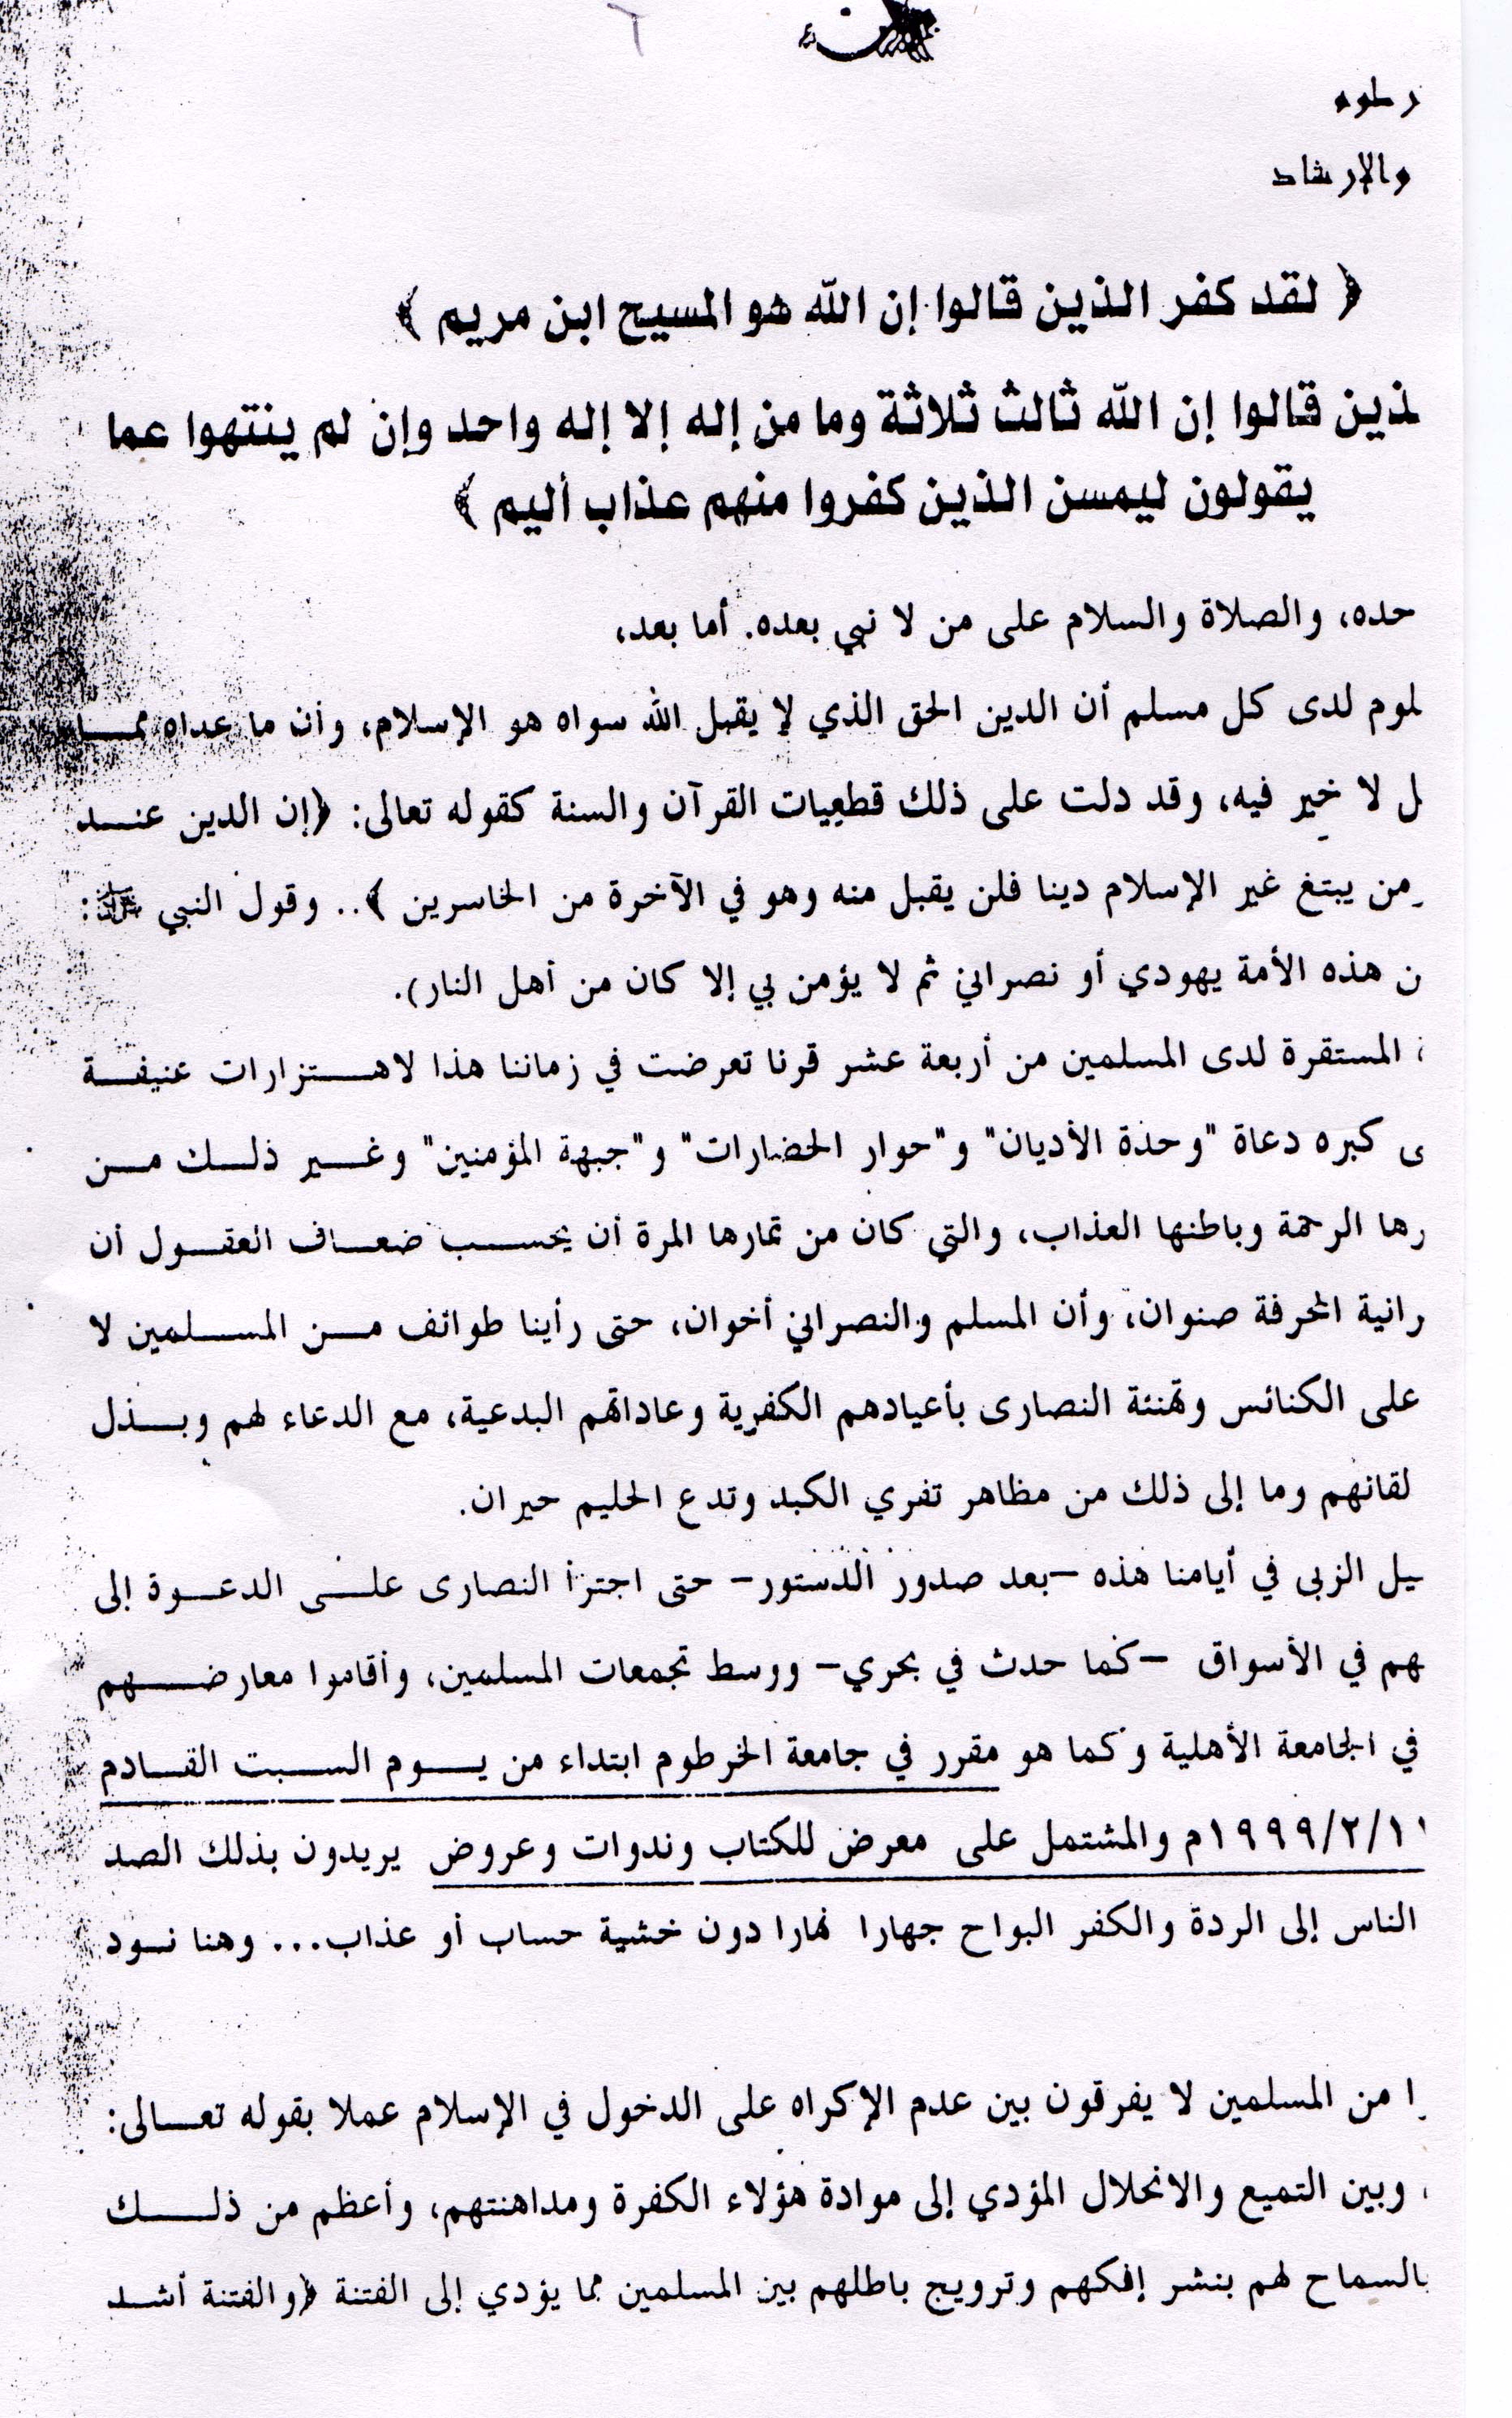 رطوم
والإرشاد
﴿ لقد كفر الذين قالوا إن الله هو المسيح ابن مريم ﴾
لذين قالوا إن الله ثالث ثلاثة وما من إله إلا إله واحد وإن لم ينتهوا عما
يقولون ليمسن الذين كفروا منهم عذاب أليم ﴾
حده، والصلاة والسلام على من لا نبي بعده. أما بعد،
لوم لدى كل مسلم أن الدين الحق الذي لا يقبل الله سواه هو الإسلام، وأن ما عداه ممـــا
ل لا خير فيه، وقد دلت على ذلك قطعيات القرآن والسنة كقوله تعالى: ﴿إن الدين عنـــد
من يبتغ غير الإسلام دينا فلن يقبل منه وهو في الآخرة من الخاسرين ﴾.. وقول النبي ﷺ:
ن هذه الأمة يهودي أو نصراني ثم لا يؤمن بي إلا كان من أهل النار).
ة المستقرة لدى المسلمين من أربعة عشر قرنا تعرضت في زماننا هذا لاهـــتزازات عنيفـــة
ى كبره دعاة "وحدة الأديان" و"حوار الحضارات" و"جبهة المؤمنين" وغـــير ذلـــك مـــن
رها الرحمة وباطنها العذاب، والتي كان من ثمارها المرة أن يحســـب ضعـــاف العقـــول أن
رانية المحرفة صنوان، وأن المسلم والنصراني أخوان، حتى رأينا طوائف مـــن المســـلمين لا
على الكنائس وتهنئة النصارى بأعيادهم الكفرية وعاداتهم البدعية، مع الدعاء لهم وبـــذل
لقائهم وما إلى ذلك من مظاهر تفري الكبد وتدع الحليم حيران.
سيل الزبى في أيامنا هذه –بعد صدور الدستور– حتى اجترأ النصارى علـــى الدعـــوة إلى
هم في الأسواق –كما حدث في بحري– ووسط تجمعات المسلمين، وأقاموا معارضـــهم
في الجامعة الأهلية وكما هو مقرر في جامعة الخرطوم ابتداء من يـــوم الســـبت القـــادم
١٩٩٩/٢/١م والمشتمل على معرض للكتاب وندوات وعروض يريدون بذلك الصد
الناس إلى الردة والكفر البواح جهارا نهارا دون خشية حساب أو عذاب... وهنا نـــود
ا من المسلمين لا يفرقون بين عدم الإكراه على الدخول في الإسلام عملا بقوله تعـــالى:
وبين التميع والانحلال المؤدي إلى موادة هؤلاء الكفرة ومداهنتهم، وأعظم من ذلـــك
بالسماح لهم بنشر إفكهم وترويج باطلهم بين المسلمين مما يؤدي إلى الفتنة ﴿والفتنة أشـــد